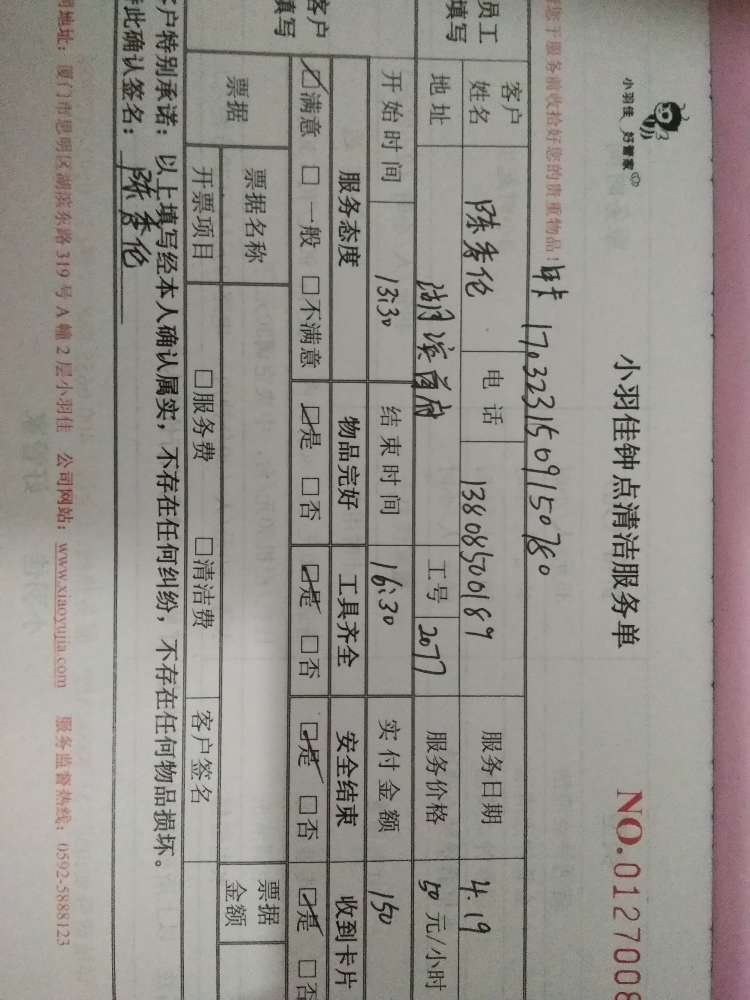 小羽佳 好管家
小羽佳钟点清洁服务单
NO.0127008
您于服务前收拾好您的贵重物品！ 17.03231509150780
员工填写 客户姓名 陈秀伦 电话 13808500189 服务日期 4.19
地址 湖滨首府 工号 2077 服务价格 50 元/小时
开始时间 13:30 结束时间 16:30 实付金额 150
客户填写 服务态度 物品完好 工具齐全 安全结束 收到卡片
☑满意 □一般 □不满意 ☑是 □否 ☑是 □否 ☑是 □否 ☑是 □否
票据 票据名称 票据金额
开票项目 □服务费 □清洁费 客户签名
客户特别承诺：以上填写经本人确认属实，不存在任何纠纷，不存在任何物品损坏。
此确认签名：陈秀伦
地址：厦门市思明区湖滨东路 319 号 A 幢 2 层小羽佳 公司网站：www.xiaoyujia.com 服务监督热线：0592-5888123